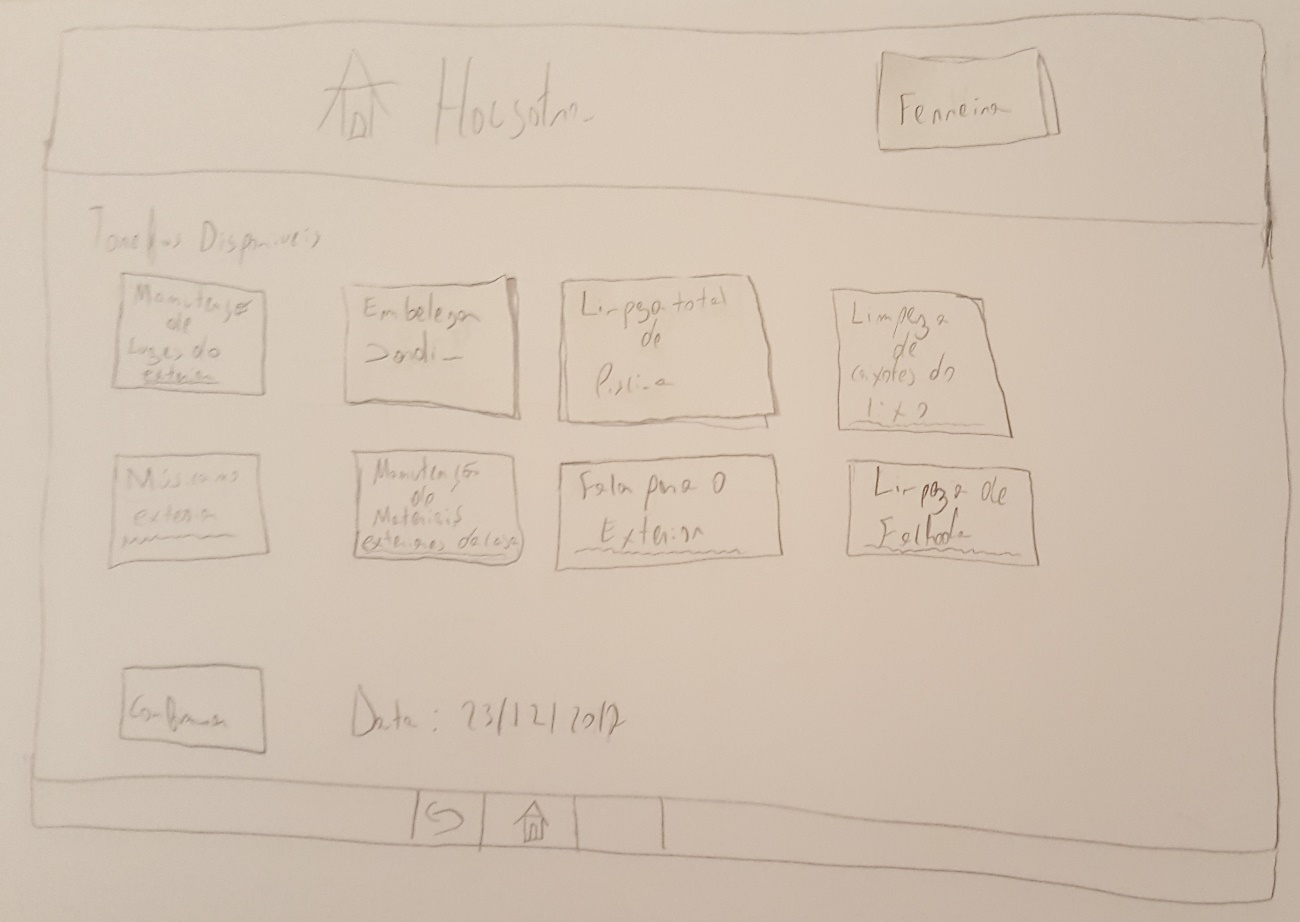 Hocsotm
Ferreira
Tarefas Disponiveis
Manutenção
de
Luzes do
exterior
Embelezar
Jardim
Limpeza total
de
Piscina
Limpeza
de
caixotes do
lixo
Música no
exterior
Manutenção
de
Materiais
exteriores da casa
Fala para o
Exterior
Limpeza de
Fachada
Confirmar
Data: 23/12/2017